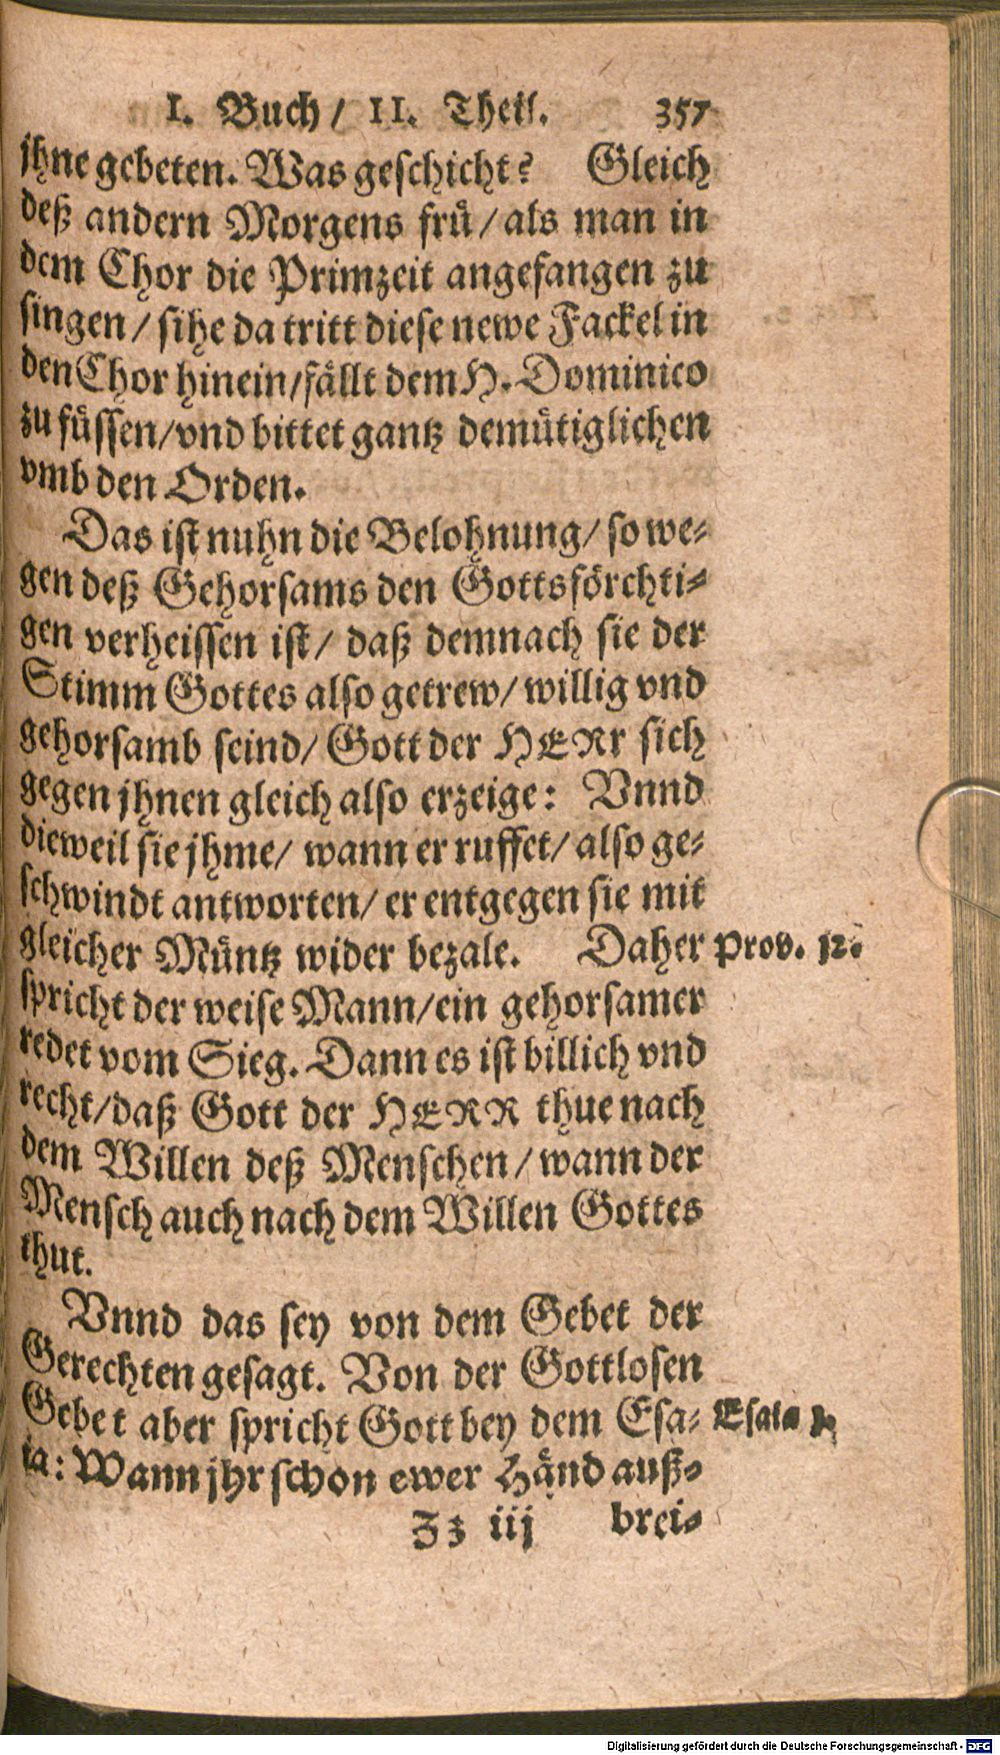 I. Buch/ II. Theil. 357
jhne gebeten. Was geschicht? Gleich
deß andern Morgens frü/ als man in
dem Chor die Primzeit angefangen zu
singen/ sihe da tritt diese newe Fackel in
den Chor hinein/fällt dem H. Dominico
zu füssen/vnd bittet gantz demütiglichen
vmb den Orden.
Das ist nuhn die Belohnung/ so we-
gen deß Gehorsams den Gottsförchti-
gen verheissen ist/ daß demnach sie der
Stimm Gottes also getrew/ willig vnd
gehorsamb seind/ Gott der HERr sich
gegen jhnen gleich also erzeige: Vnnd
dieweil sie jhme/ wann er ruffet/ also ge-
schwindt antworten/ er entgegen sie mit
gleicher Müntz wider bezale. Daher Prov. 12.
spricht der weise Mann/ein gehorsamer
redet vom Sieg. Dann es ist billich vnd
recht/daß Gott der HERR thue nach
dem Willen deß Menschen/ wann der
Mensch auch nach dem Willen Gottes
thut.
Vnnd das sey von dem Gebet der
Gerechten gesagt. Von der Gottlosen
Gebet aber spricht Gott bey dem Esa- Esaiæ
ia: Wann jhr schon ewer Händ auß-
Zz iij brei-
Digitalisierung gefördert durch die Deutsche Forschungsgemeinschaft - DFG